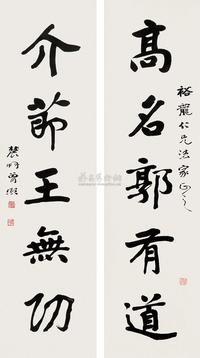 裕龍仁兄法家正之
髙名郭有道
介節王無功
農髯曾熙